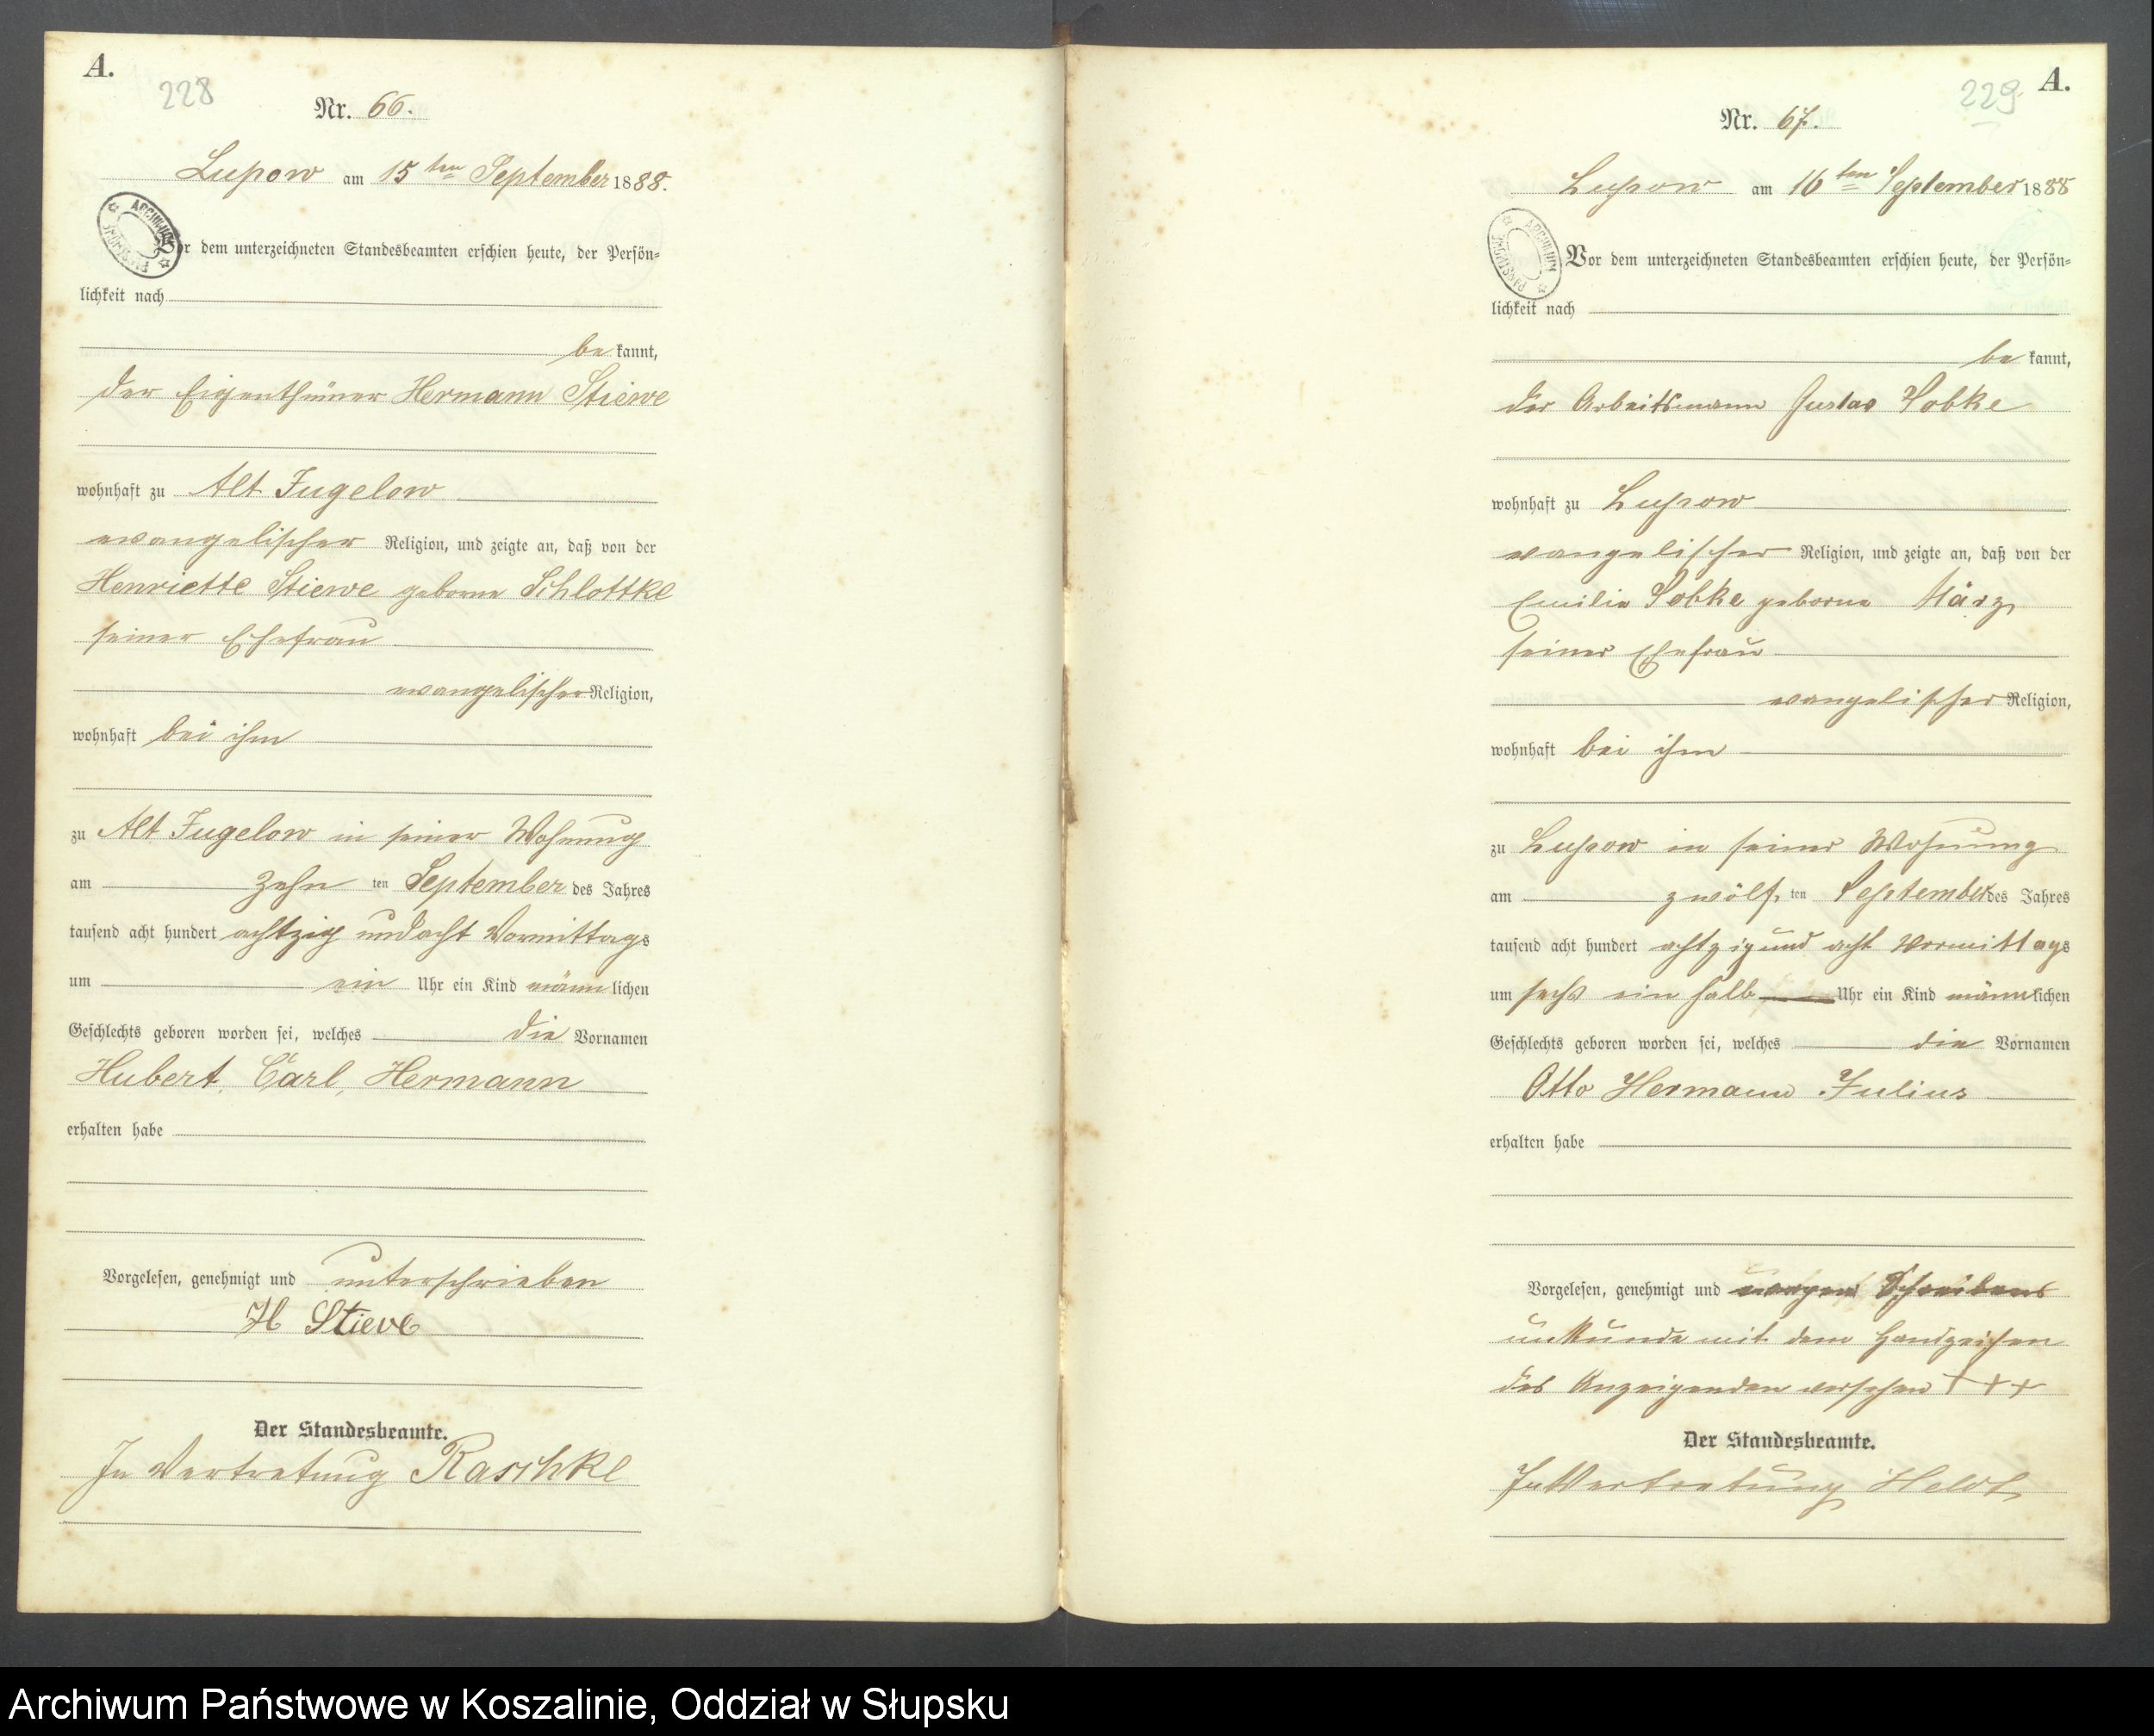 A.
228
Nr. 66.
Lupow am 15 ten September 1888.
Vor dem unterzeichneten Standesbeamten erschien heute, der Persön=
lichkeit nach
be kannt,
der Eigenthümer Hermann Stiewe
wohnhaft zu Alt Jugelow
evangelischer Religion, und zeigte an, daß von der
Henriette Stiewe geborne Schlottke
seiner Ehefrau
evangelischer Religion,
wohnhaft bei ihm
zu Alt Jugelow in seiner Wohnung
am zehn ten September des Jahres
tausend acht hundert achtzig und acht Vormittags
um ein Uhr ein Kind männ lichen
Geschlechts geboren worden sei, welches die Vornamen
Hubert, Carl, Hermann
erhalten habe
Vorgelesen, genehmigt und unterschrieben
H Stieve
Der Standesbeamte.
In Vertretung Raschke
ARCHIWUM PAŃSTWOWE
229
A.
Nr. 67.
Lupow am 16 ten September 1888
Vor dem unterzeichneten Standesbeamten erschien heute, der Persön=
lichkeit nach
be kannt,
der Arbeitsmann Gustav Sobke
wohnhaft zu Lupow
evangelischer Religion, und zeigte an, daß von der
Emilie Sobke geborne März
seiner Ehefrau
evangelischer Religion,
wohnhaft bei ihm
zu Lupow in seiner Wohnung
am zwölf ten September des Jahres
tausend acht hundert achtzig und acht Vormittags
um sechs ein halb Uhr ein Kind männlichen
Geschlechts geboren worden sei, welches die Vornamen
Otto Hermann Julius
erhalten habe
Vorgelesen, genehmigt und wegen Schreibens
unkunde mit dem Handzeichen
des Anzeigenden versehen + + +
Der Standesbeamte.
In Vertretung Heldt
ARCHIWUM PAŃSTWOWE
Archiwum Państwowe w Koszalinie, Oddział w Słupsku